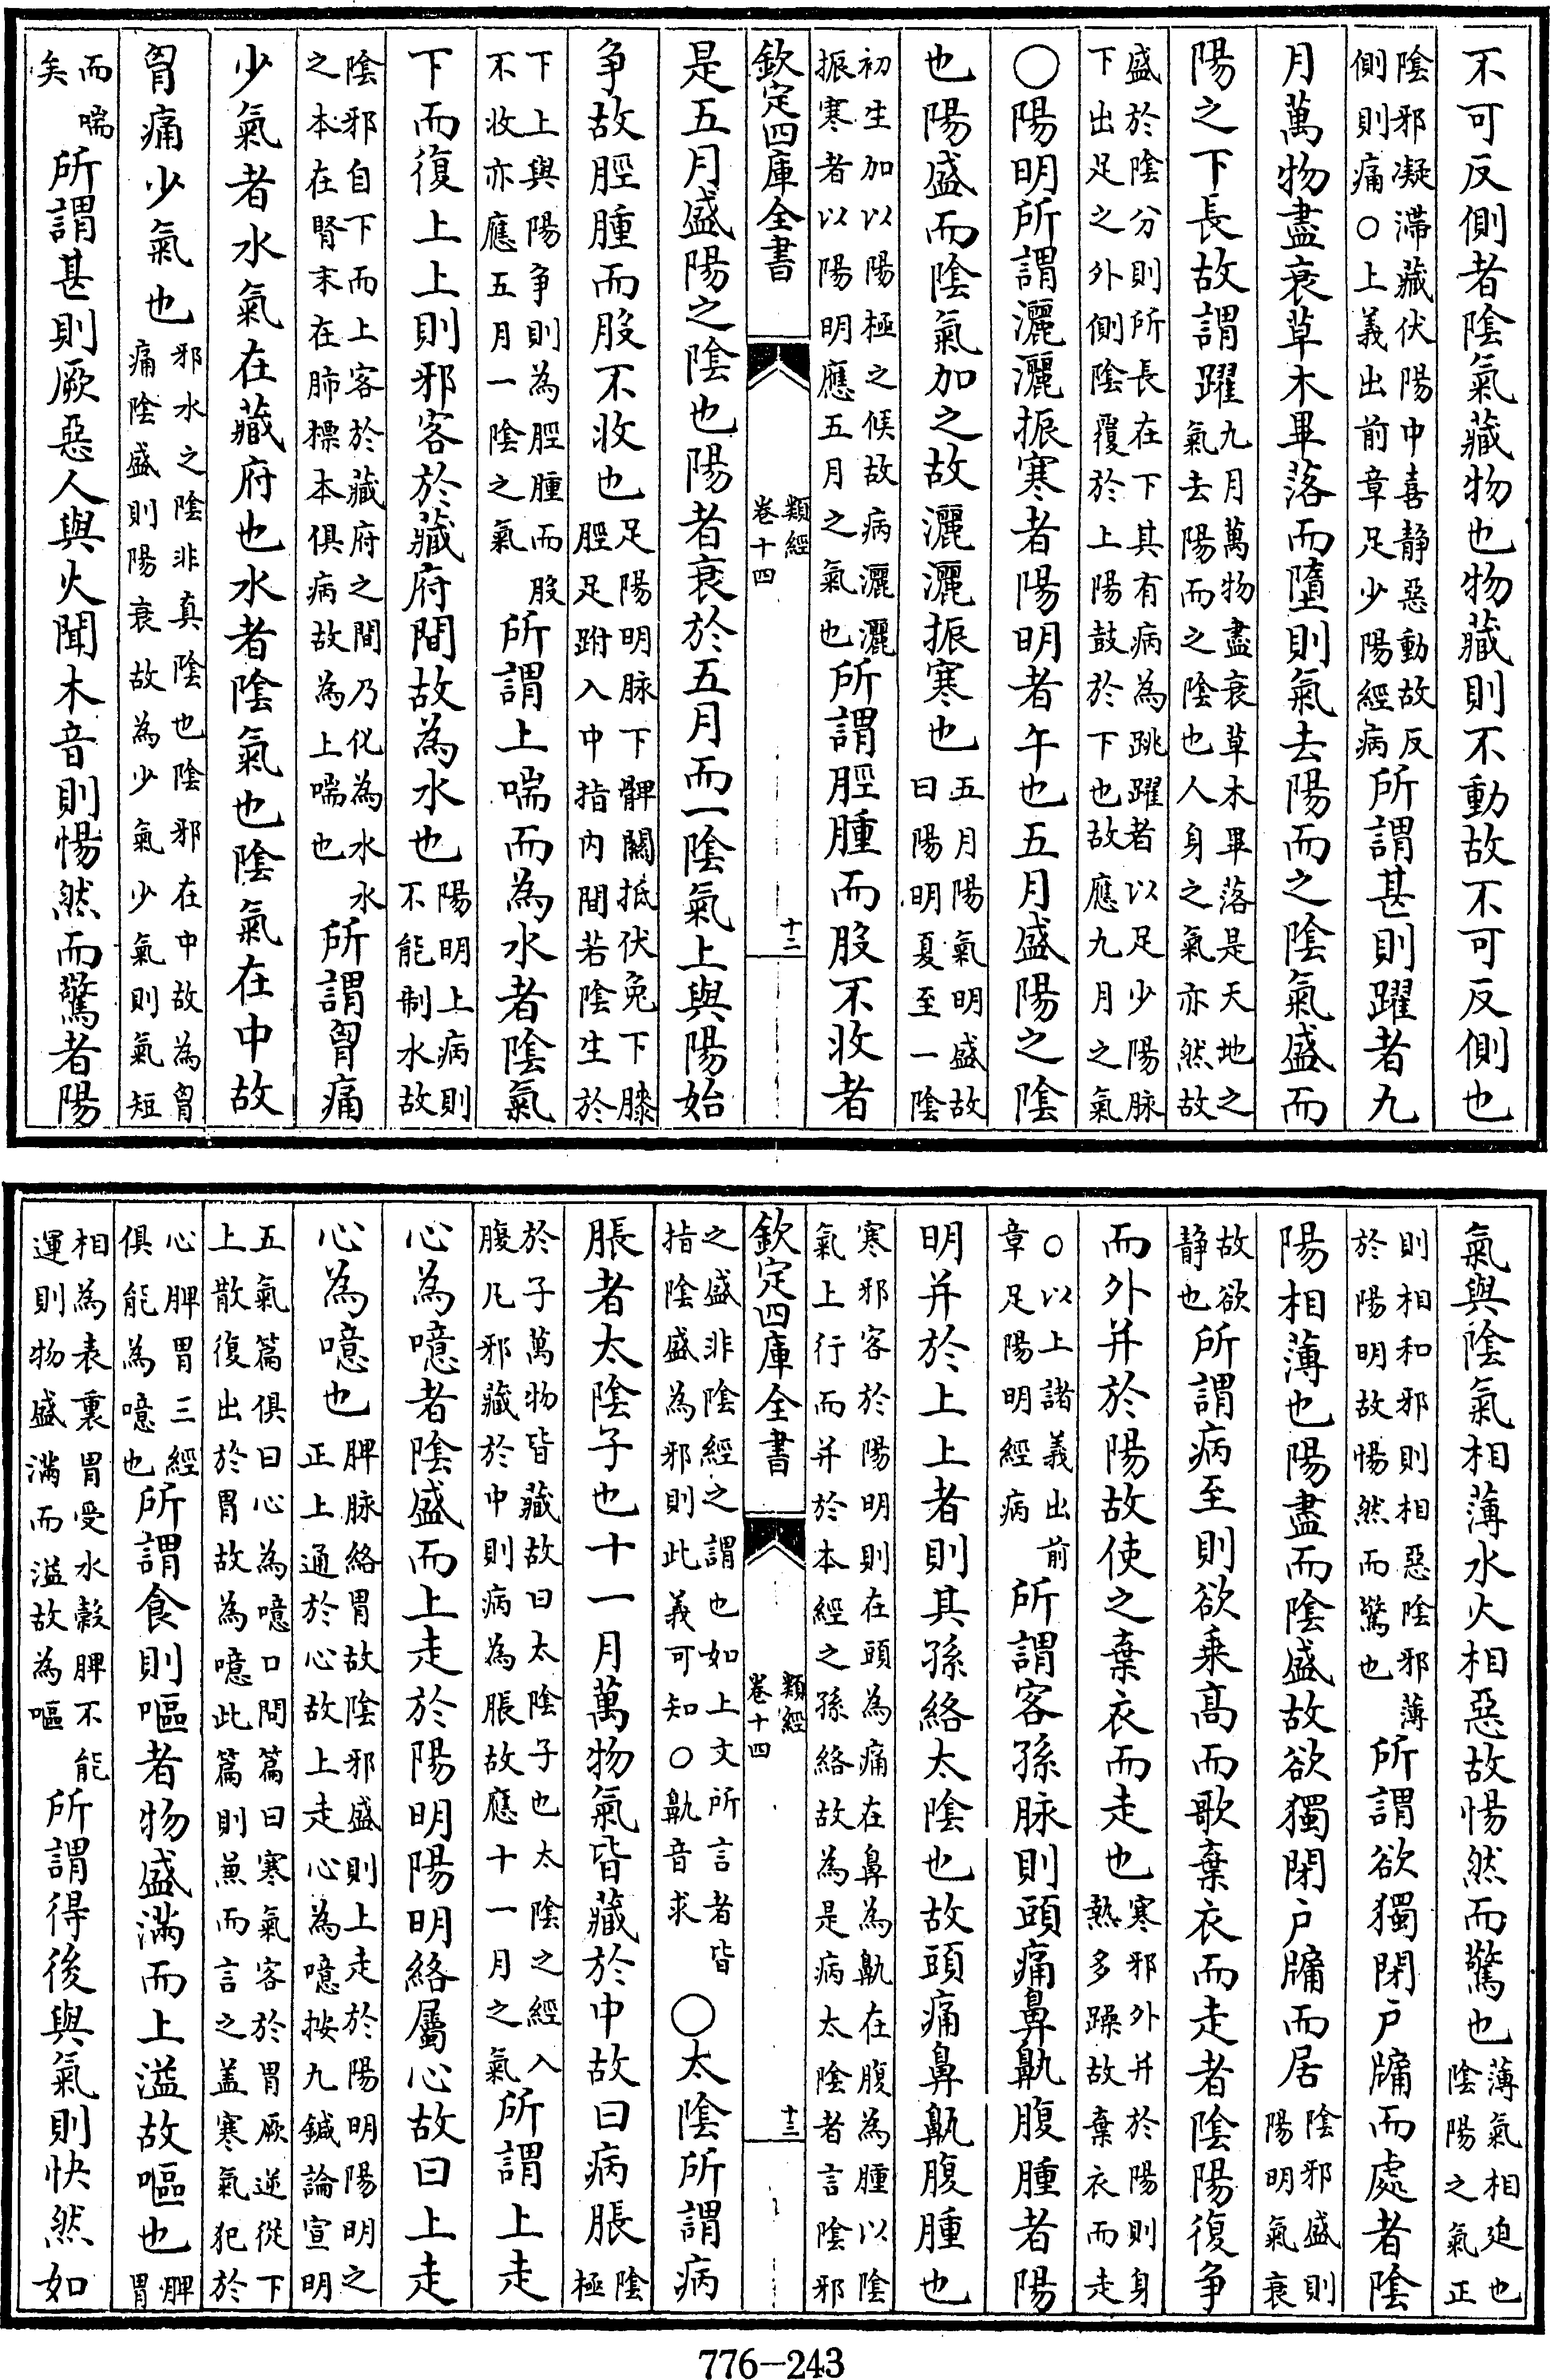 不可反側者陰氣藏物也物藏則不動故不可反側也
陰邪凝滯藏伏陽中喜静惡動故反
側則痛○上義出前章足少陽經病
所謂甚則躍者九
月萬物盡衰草木畢落而墮則氣去陽而之陰氣盛而
陽之下長故謂躍
九月萬物盡衰草木畢落是天地之
氣去陽而之陰也人身之氣亦然故
盛於陰分則所長在下其有病為跳躍者以足少陽脉
下出足之外側陰覆於上陽鼓於下也故應九月之氣
○陽明所謂灑灑振寒者陽明者午也五月盛陽之陰
也陽盛而陰氣加之故灑灑振寒也
五月陽氣明盛故
曰陽明夏至一陰
初生加以陽極之候故病灑灑
振寒者以陽明應五月之氣也
所謂脛腫而股不收者
欽定四庫全書
類經
卷十四
十二
是五月盛陽之陰也陽者衰於五月而一陰氣上與陽始
争故脛腫而股不收也
足陽明脉下髀關抵伏兔下膝
脛足跗入中指内間若陰生於
下上與陽争則為脛腫而股
不收亦應五月一陰之氣
所謂上喘而為水者陰氣
下而復上上則邪客於藏府間故為水也
陽明上病則
不能制水故
陰邪自下而上客於藏府之間乃化為水水
之本在腎末在肺標本俱病故為上喘也
所謂胷痛
少氣者水氣在藏府也水者陰氣也陰氣在中故
胷痛少氣也
邪水之陰非真陰也陰邪在中故為胷
痛陰盛則陽衰故為少氣少氣則氣短
而喘
矣
所謂甚則厥惡人與火聞木音則惕然而驚者陽
氣與陰氣相薄水火相惡故惕然而驚也
薄氣相迫也
陰陽之氣正
則相和邪則相惡陰邪薄
於陽明故惕然而驚也
所謂欲獨閉户牖而處者陰
陽相薄也陽盡而陰盛故欲獨閉户牖而居
陰邪盛則
陽明氣衰
故欲
静也
所謂病至則欲乗髙而歌棄衣而走者陰陽復争
而外并於陽故使之棄衣而走也
寒邪外并於陽則身
熱多躁故棄衣而走
○以上諸義出前
章足陽明經病
所謂客孫脉則頭痛鼻鼽腹腫者陽
明并於上上者則其孫絡太陰也故頭痛鼻鼽腹腫也
寒邪客於陽明則在頭為痛在鼻為鼽在腹為腫以陰
氣上行而并於本經之孫絡故為是病太陰者言陰邪
欽定四庫全書
類經
卷十四
十三
之盛非陰經之謂也如上文所言者皆
指陰盛為邪則此義可知○鼽音求
○太陰所謂病
脹者太陰子也十一月萬物氣皆藏於中故曰病脹
陰
極
於子萬物皆藏故曰太陰子也太陰之經入
腹凡邪藏於中則病為脹故應十一月之氣
所謂上走
心為噫者陰盛而上走於陽明陽明絡屬心故曰上走
心為噫也
脾脉絡胃故陰邪盛則上走於陽明陽明之
正上通於心故上走心為噫按九鍼論宣明
五氣篇俱曰心為噫口問篇曰寒氣客於胃厥逆從下
上散復出於胃故為噫此篇則兼而言之盖寒氣犯於
心脾胃三經
俱能為噫也
所謂食則嘔者物盛滿而上溢故嘔也
脾
胃
相為表裏胃受水穀脾不能
運則物盛滿而溢故為嘔
所謂得後與氣則快然如
776-243